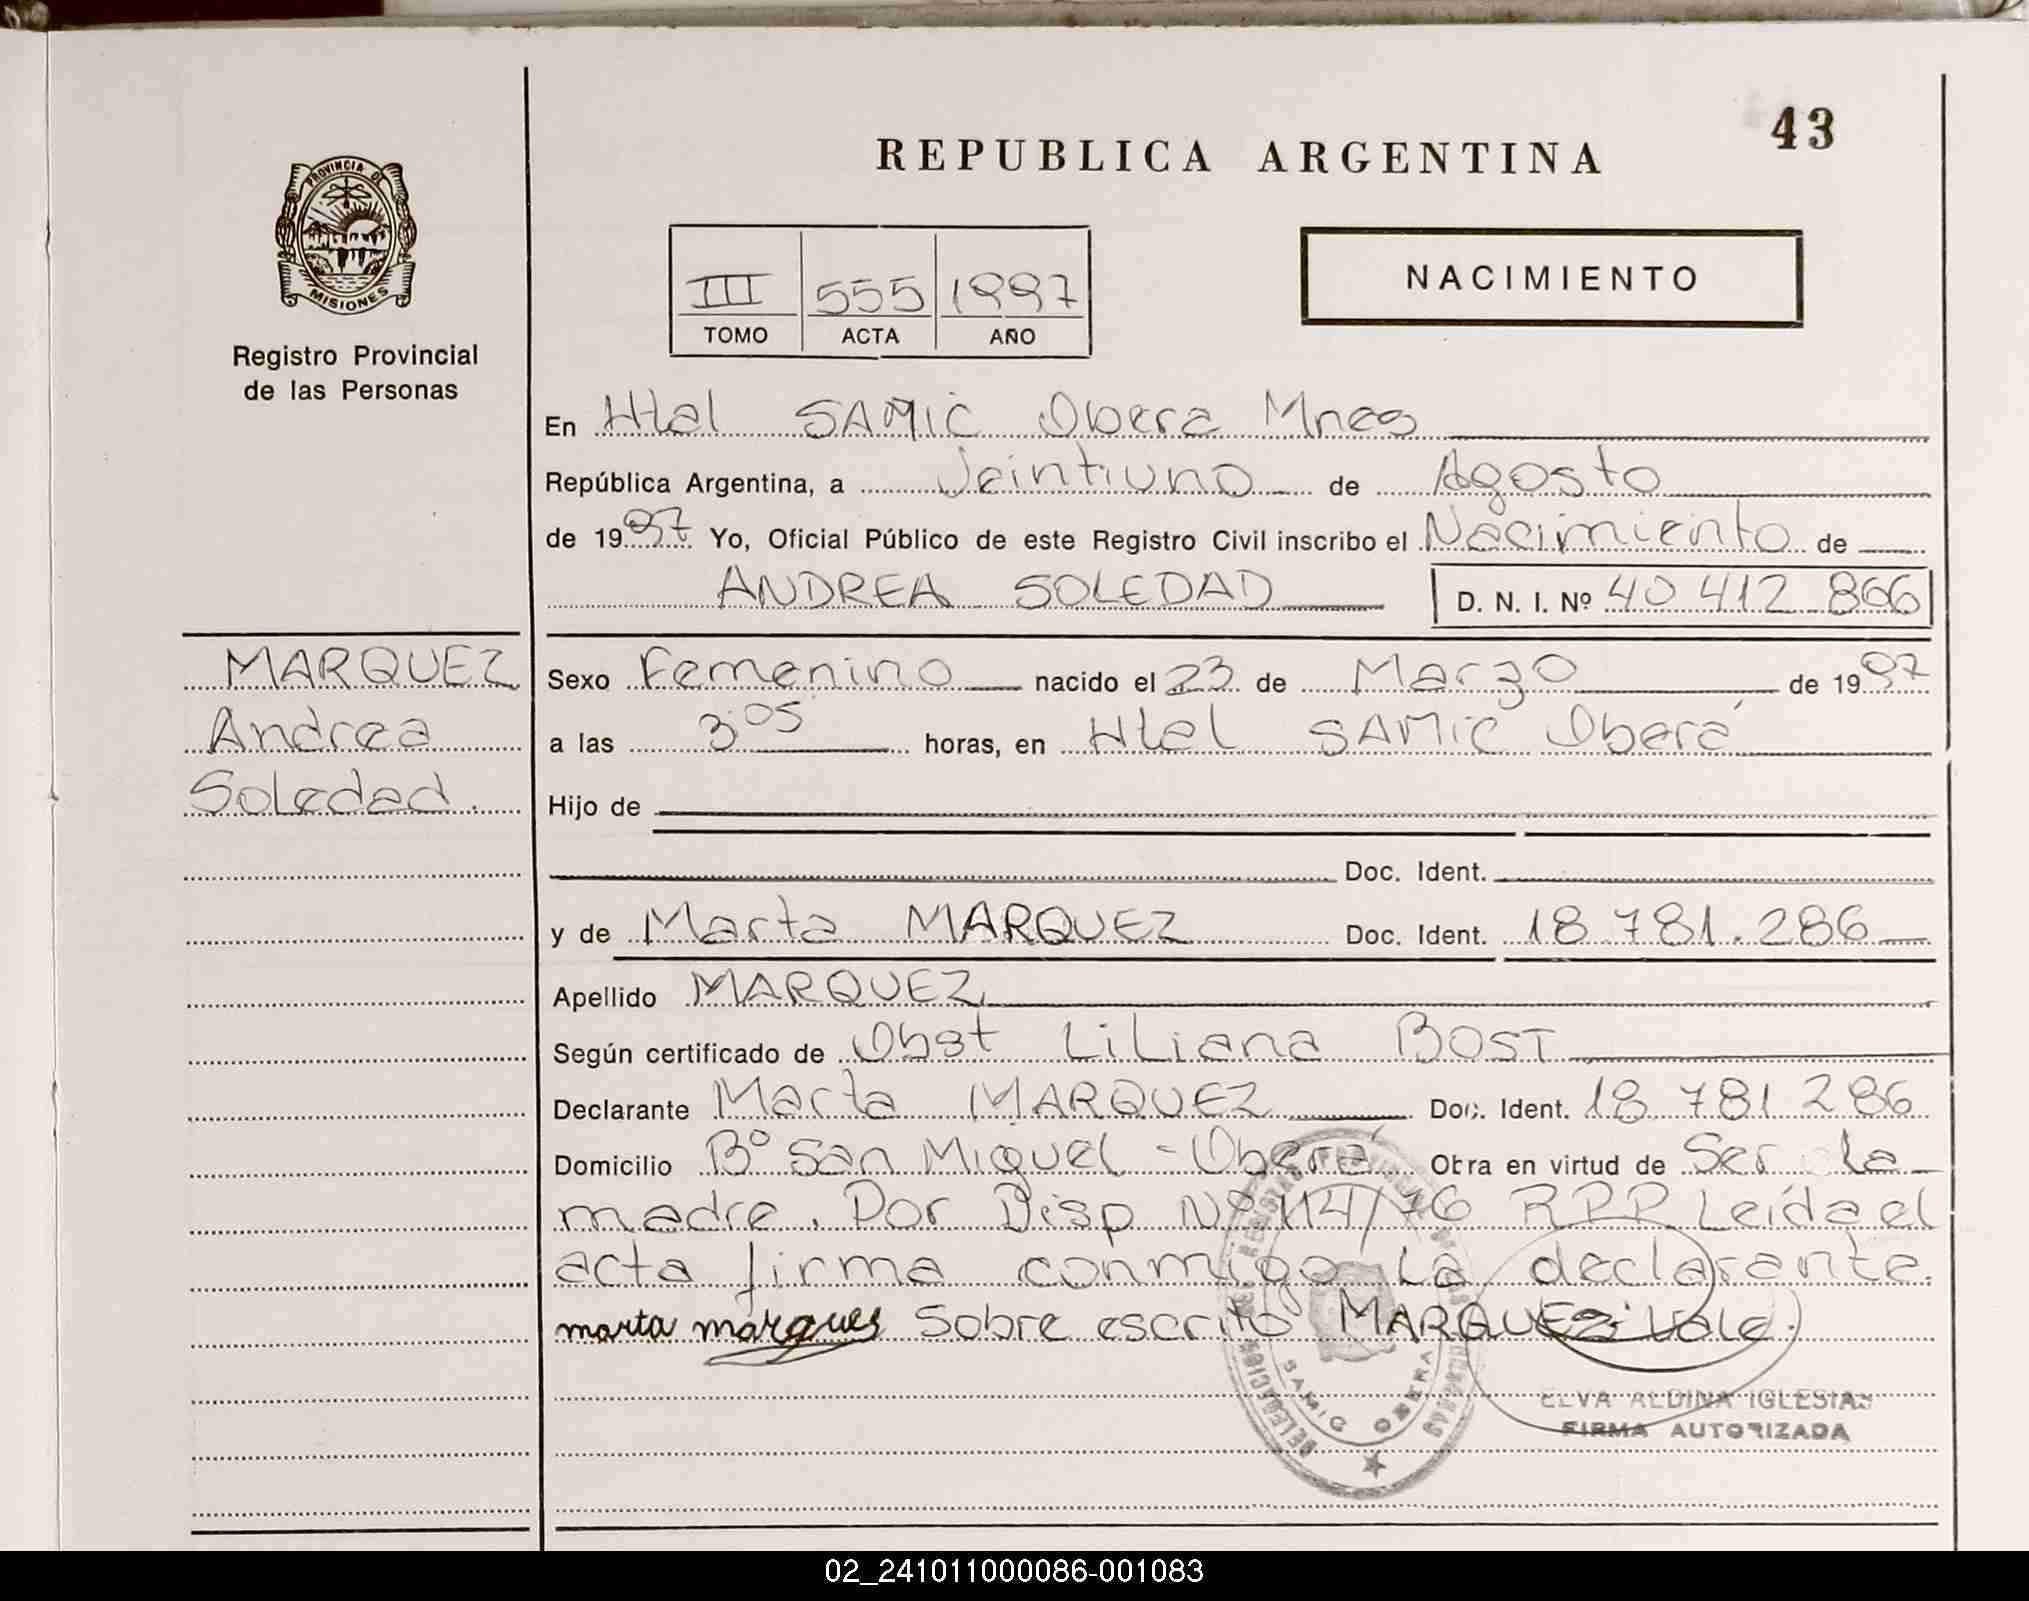 43
REPUBLICA ARGENTINA
PROVINCIA DE
MISIONES
Registro Provincial
de las Personas
III 555 1997
TOMO ACTA AÑO
NACIMIENTO
En Htal SAMIC Obera Mnes
República Argentina, a Veintiuno de Agosto
de 1997 Yo, Oficial Público de este Registro Civil inscribo el Nacimiento de
ANDREA SOLEDAD D. N. I. Nº 40 412 866
MARQUEZ
Andrea
Soledad.
Sexo Femenino nacido el 23 de Marzo de 1997
a las 3 05 horas, en Htal SAMIC Oberá
Hijo de
Doc. Ident.
y de Marta MARQUEZ Doc. Ident. 18 781.286
Apellido MARQUEZ
Según certificado de Obst Liliana BOST
Declarante Marta MARQUEZ Doc. Ident. 18 781 286
Domicilio Bº San Miguel - Oberá Obra en virtud de Ser la
madre. Por Disp Nº 114/76 RPP Leída el
acta firma conmigo la declarante.
marta marques Sobre escrito MARQUEZ: Vale.
SAMIC OBERA
ELVA ALDINA IGLESIAS
FIRMA AUTORIZADA
02_241011000086-001083